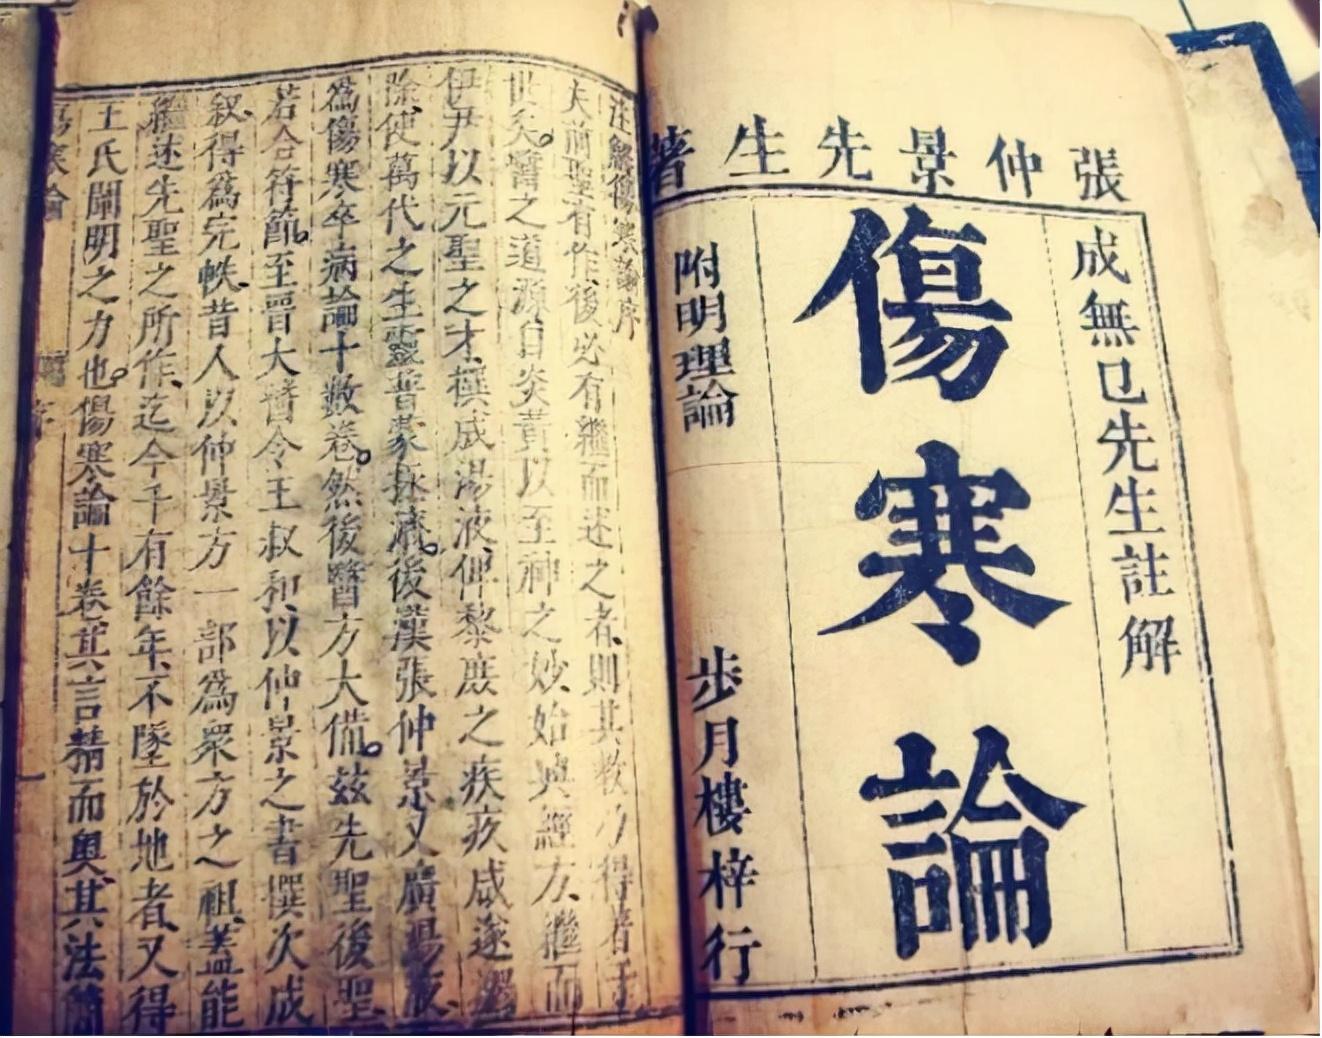 張仲景先生著
成無已先生註解
傷寒論
附明理論
步月樓梓行
註解傷寒論序
夫前聖有作後必有繼而述之者則其教乃得著于
世矣醫之道源自炎黃以至神之妙始興經方繼而
伊尹以元聖之才撰成湯液俾黎庶之疾疚咸遂蠲
除使萬代之生靈普蒙拯濟後漢張仲景又廣湯液
為傷寒卒病論十數卷然後醫方大備茲先聖後聖
若合符節至晉大醫令王叔和以仲景之書撰次成
叙得為完帙昔人以仲景方一部為衆方之祖蓋能
繼述先聖之所作迄今千有餘年不墜於地者又得
王氏闡明之力也傷寒論十卷其言精而奥其法簡
傷寒論
序
一